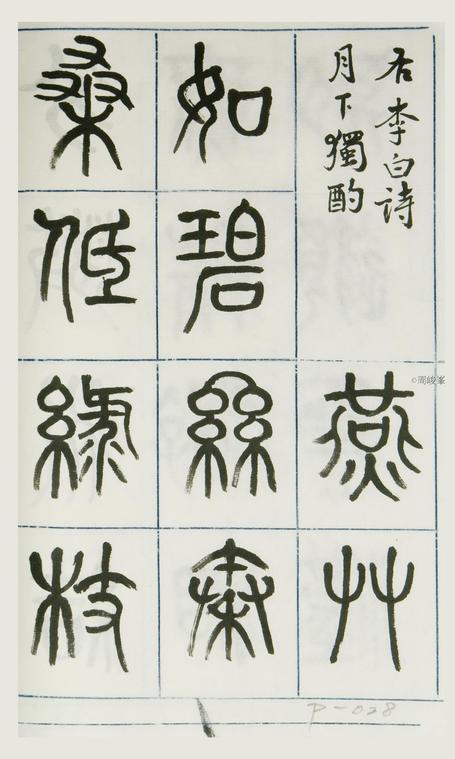 右李白詩
月下獨酌
燕艸
如碧絲秦
桑低綠枝
©周峻峯
P-028